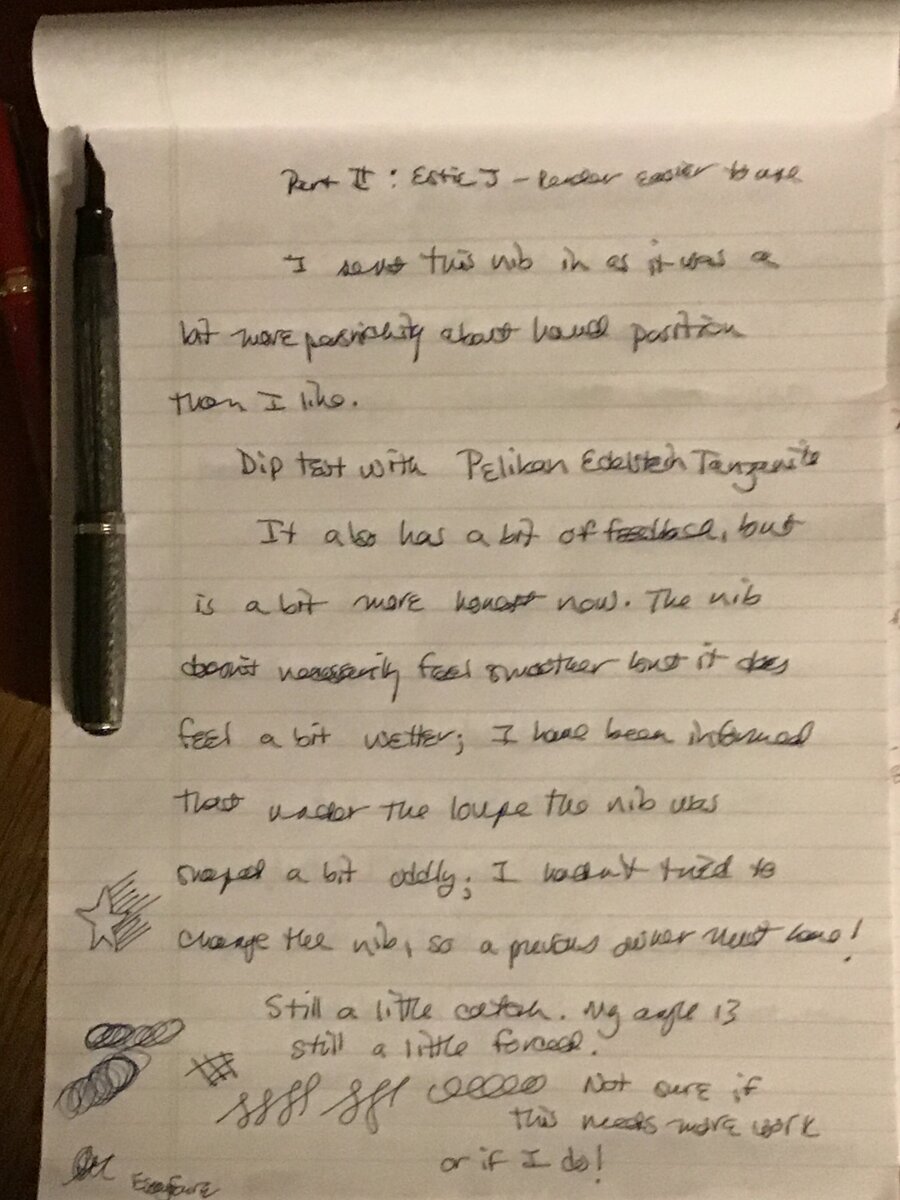 Part II : Estie J - Render easier to use
I sent this nib in as it was a
bit more persnickity about hand position
than I like.
Dip test with Pelikan Edelstein Tanzanite
It also has a bit of feedback, but
is a bit more honest now. The nib
doesn't necessarily feel smoother but it does
feel a bit wetter; I have been informed
that under the loupe the nib was
shaped a bit oddly; I hadn't tried to
change the nib, so a previous owner must have!
Still a little catch. My angle is
still a little forced.
Not sure if
this needs more work
or if I do!